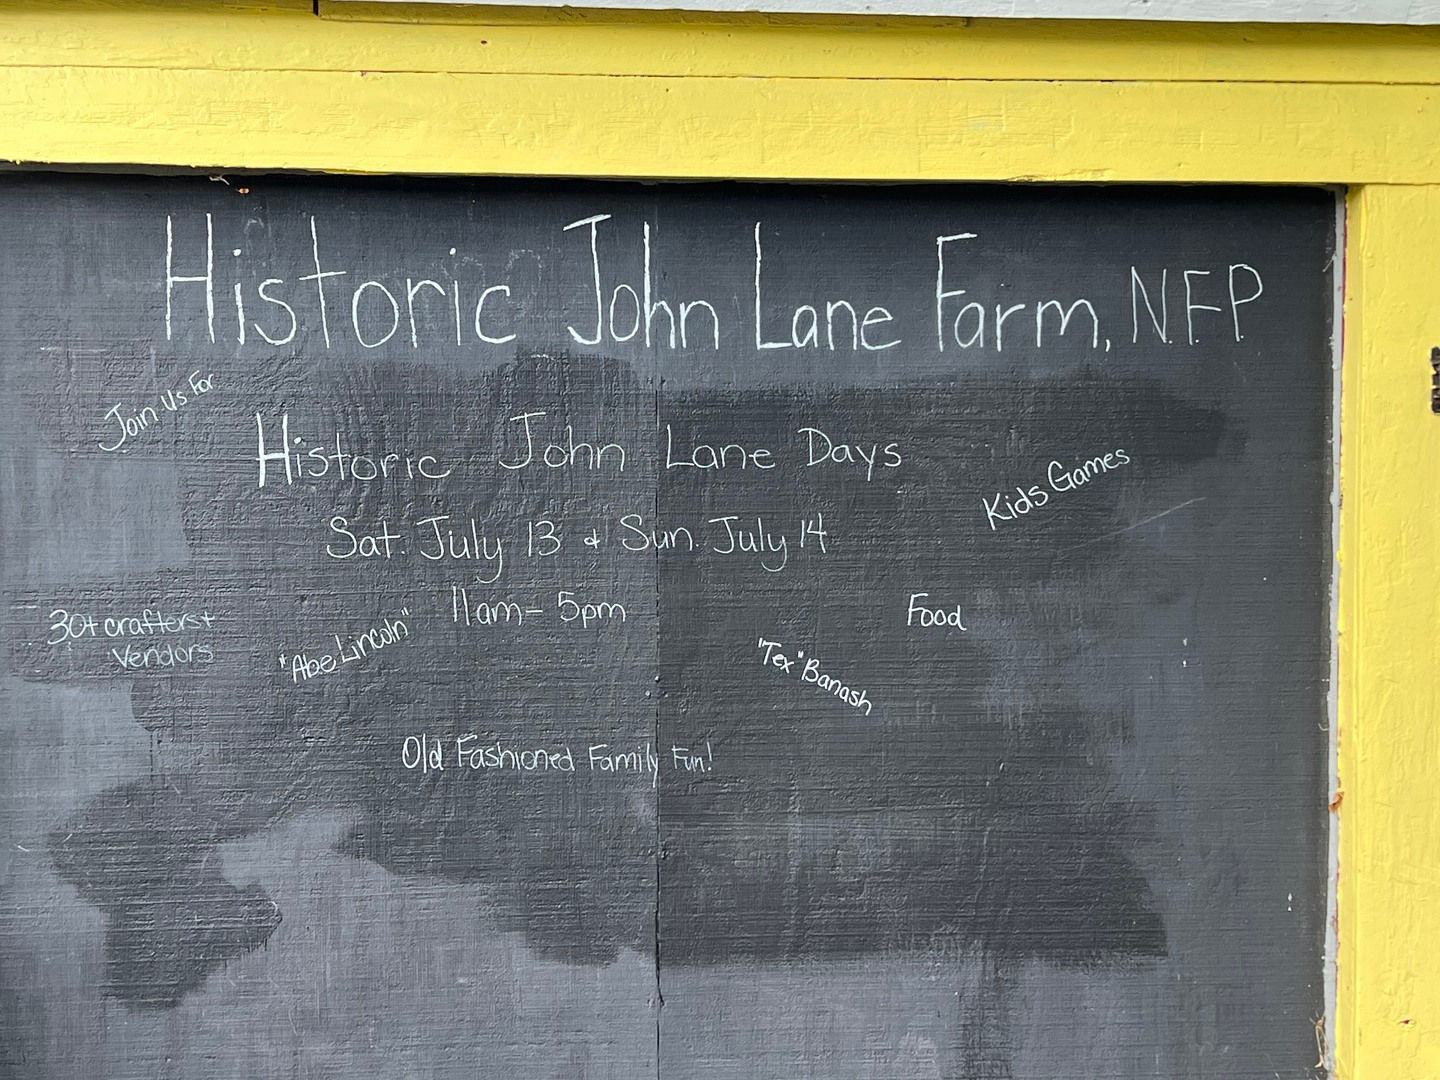 Historic John Lane Farm, N.F.P
Join Us For
Historic John Lane Days
Kids Games
Sat. July 13 & Sun. July 14
11am - 5pm
30+ crafters +
Vendors
"Abe Lincoln"
Food
"Tex" Banash
Old Fashioned Family Fun!